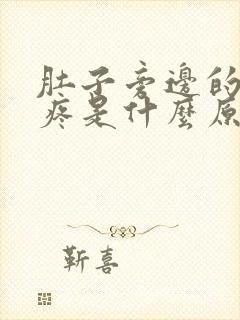 肚子旁边的
疼是什麼原
靳喜